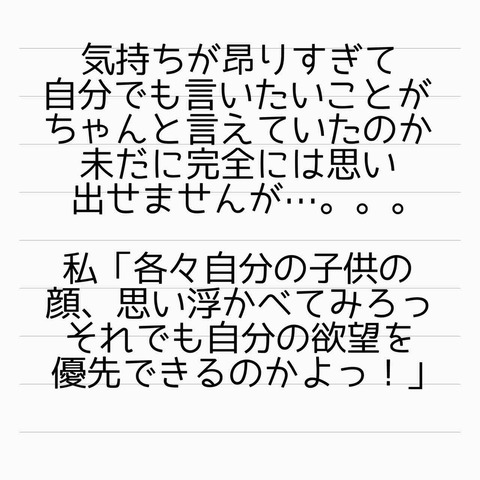 気持ちが昂りすぎて
自分でも言いたいことが
ちゃんと言えていたのか
未だに完全には思い
出せませんが…。。。
私「各々自分の子供の
顔、思い浮かべてみろっ
それでも自分の欲望を
優先できるのかよっ！」